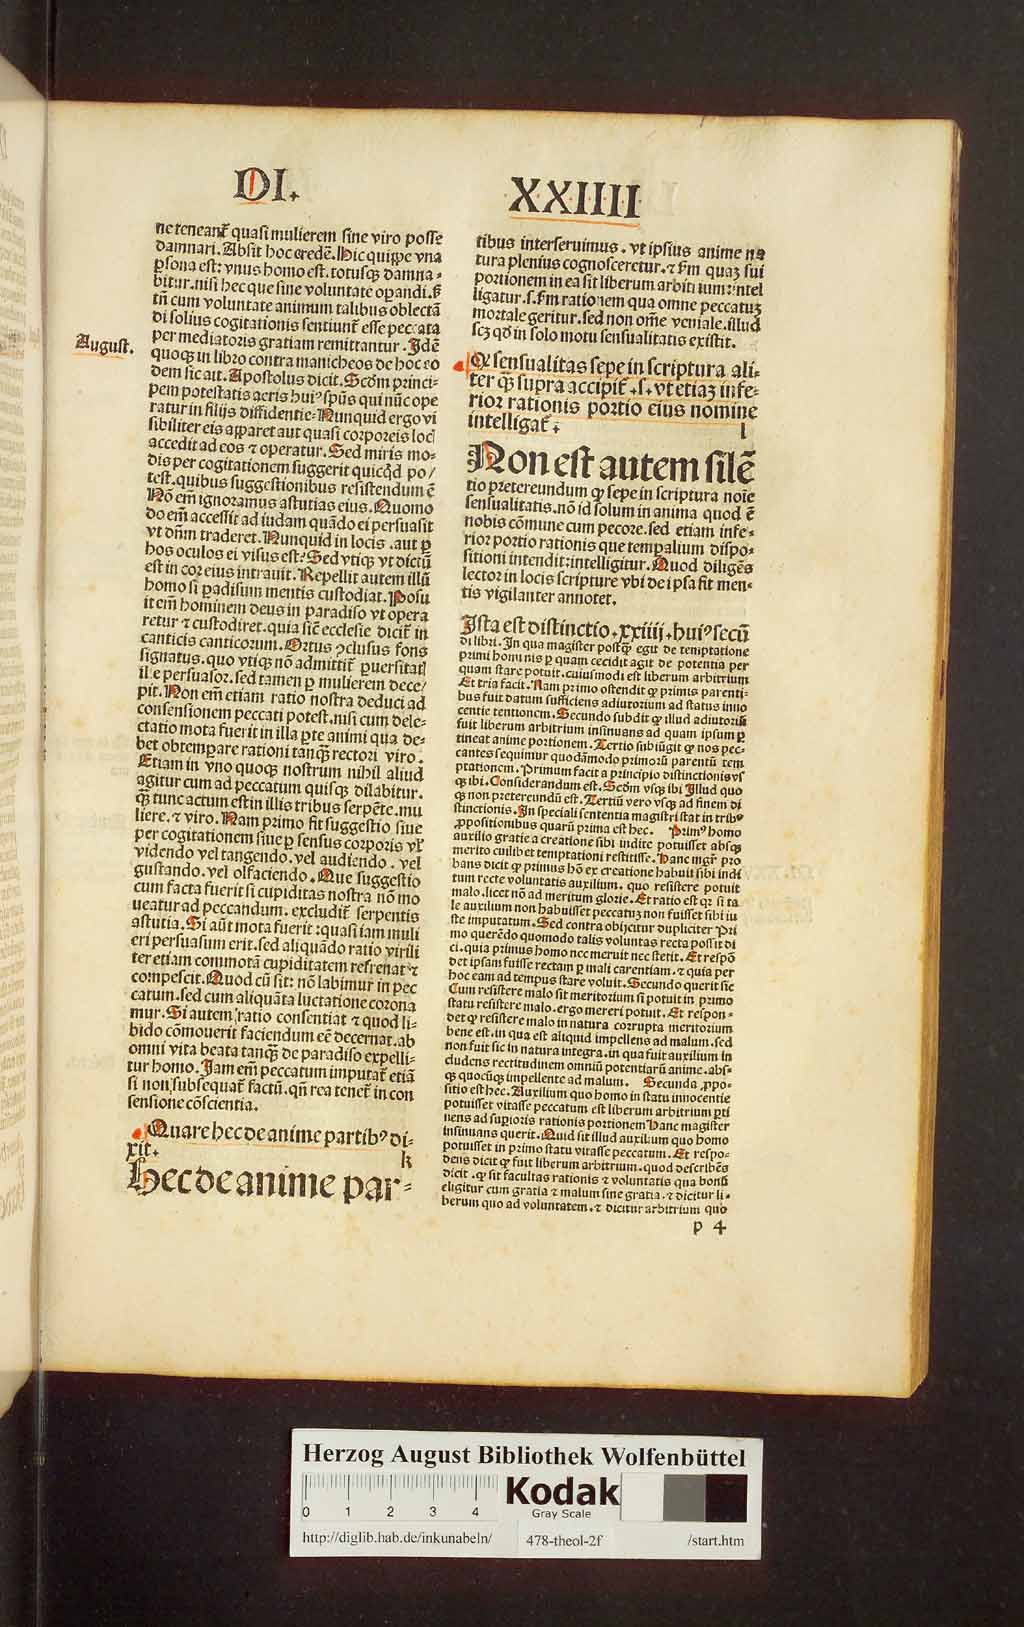 DI.
XXIIII
ne teneant᷑ quasi mulierem sine viro posse
damnari. Absit hoc credē. Hic quippe vna
ꝑsona est: vnus homo est. totusqꝫ damna-
bitur. nisi hec que sine voluntate oꝑandi. sꝫ
tn̄ cum voluntate animum talibus oblectā
di solius cogitationis sentiunt᷑ esse peccata
per mediatoris gratiam remittantur. Idē
August.
quoqꝫ in libro contra manicheos de hoc eo
dem sic ait. Apostolus dicit. Scd̄m princi-
pem potestatis aeris huiꝰ spūs qui nūc ope
ratur in filijs diffidentie. Nunquid ergo vi
sibiliter eis apparet aut quasi corporeis loc
accedit ad eos ⁊ operatur. Sed miris mo-
dis per cogitationem suggerit quicqd̄ po/
test. quibus suggestionibus resistendum ē
Nō em̄ ignoramus astutias eius. Quomo
do em̄ accessit ad iudam quādo ei persuasit
vt dn̄m traderet. Nunquid in locis. aut ꝑ
hos oculos ei visus est? Sed vtiqꝫ vt dictū
est in cor eius intrauit. Repellit autem illū
homo si ꝑadisum mentis custodiat. Posu
it em̄ hominem deus in paradiso vt opera
retur ⁊ custodiret. quia sic̄ ecclesie dicit᷑ in
canticis canticorum. Ortus ꝯclusus fons
signatus. quo vtiqꝫ nō admittit᷑ ꝑuersitat
ille persuasor. sed tamen ꝑ mulierem dece/
pit. Non em̄ etiam ratio nostra deduci ad
consensionem peccati potest. nisi cum dele-
ctatio mota fuerit in illa ꝑte animi qua de-
bet obtemꝑare rationi tanqꝫ rectori viro.
Etiam in vno quoqꝫ nostrum nihil aliud
agitur cum ad peccatum quisqꝫ dilabitur.
qꝫ tunc actum est in illis tribus serpēte. mu
liere. ⁊ viro. Nam primo fit suggestio siue
per cogitationem siue ꝑ sensus corporis vl᷑
videndo vel tangendo. vel audiendo. vel
gustando. vel olfaciendo. Que suggestio
cum facta fuerit si cupiditas nostra nō mo
ueatur ad peccandum. excludit᷑ serpentis
astutia. Si aūt mota fuerit: quasi iam muli
eri persuasum erit. sed aliquādo ratio virili
ter etiam commotā cupiditatem refrenat ⁊
compescit. Quod cū fit: nō labimur in pec
catum. sed cum aliquāta luctatione corona
mur. Si autem ratio consentiat ⁊ quod li-
bido cōmouerit faciendum eē decernat. ab
omni vita beata tanqꝫ de paradiso expelli-
tur homo. Iam em̄ peccatum imputat᷑ etiā
si non subsequat᷑ factū. qn̄ rea tenet᷑ in con
sensione cōscientia.
Quare hec de anime partibꝰ di-
xit.
k
Hec de anime par-
tibus inseruimus. vt ipsius anime na
tura plenius cognosceretur. ⁊ s̄m quaꝫ sui
portionem in ea sit liberum arbitrium: intel
ligatur. s. s̄m rationem qua omne peccatuꝫ
mortale geritur. sed non om̄e veniale. illud
scꝫ qd̄ in solo motu sensualitatis existit.
Qꝫ sensualitas sepe in scriptura ali-
ter qꝫ supra accipit᷑. s. vt etiaꝫ infe-
rior rationis portio eius nomine
intelligat᷑.
l
Non est autem silē
tio pretereundum qꝫ sepe in scriptura noīe
sensualitatis. nō id solum in anima quod ē
nobis cōmune cum pecore. sed etiam infe-
rior portio rationis que temꝑalium dispo-
sitioni intendit: intelligitur. Quod diligēs
lector in locis scripture vbi de ipsa fit men-
tis vigilanter annotet.
Ista est distinctio. xxiiii. huiꝰ secū
di libri. In qua magister postqꝫ egit de temptatione
primi hominis ꝑ quam cecidit agit de potentia per
quam stare potuit. cuiusmodi est liberum arbitrium
Et tria facit. Nam primo ostendit qꝫ primis parenti-
bus fuit datum sufficiens adiutorium ad status inno
centie tentionem. Secundo subdit qꝫ illud adiutoriū
fuit liberum arbitrium insinuans ad quam ipsum ꝑ
tineat anime portionem. Tertio subiūgit qꝫ nos pec-
cantes sequimur quodāmodo primorū parentū tem
ptationem. Primum facit a principio distinctionis vs
qꝫ ibi. Considerandum est. Scd̄m vsqꝫ ibi Illud quo
qꝫ non pretereundū est. Tertiū vero vsqꝫ ad finem di
stinctionis. In speciali sententia magistri stat in tribꝰ
ꝓpositionibus quarū prima est hec. Primꝰ homo
auxilio gratie a creatione sibi indite potuisset absqꝫ
merito cuilibet temptationi restitisse. Hanc mgr̄ pro
bans dicit qꝫ primus hō ex creatione habuit sibi indi
tum recte voluntatis auxilium. quo resistere potuit
malo. licet nō ad meritum glorie. Et ratio est qꝛ si ta
le auxilium non habuisset peccatuꝫ non fuisset sibi iu
ste imputatum. Sed contra obijcitur dupliciter Pri
mo querēdo quomodo talis voluntas recta possit di
ci. quia primus homo nec meruit nec stetit. Et respō
det ipsam fuisse rectam ꝑ mali carentiam. ⁊ quia per
hoc eam ad tempus stare voluit. Secundo querit sic
Cum resistere malo sit meritorium si potuit in primo
statu resistere malo. ergo mereri potuit. Et respon-
det qꝫ resistere malo in natura corrupta meritorium
bene est. in qua est aliquid impellens ad malum. sed
non fuit sic in natura integra. in qua fuit auxilium in
cludens rectitudinem omniū potentiarū anime. abs-
qꝫ quocūqꝫ impellente ad malum. Secunda ꝓpo-
sitio est hec. Auxilium quo homo in statu innocentie
potuisset vitasse peccatum est liberum arbitrium ꝑti
nens ad suꝑioris rationis portionem Hanc magister
insinuans querit. Quid sit illud auxilium quo homo
potuisset in primo statu vitasse peccatum. Et respo-
dens dicit qꝫ fuit liberum arbitrium. quod describēs
dicit. qꝫ sit facultas rationis ⁊ voluntatis qua bonū
eligitur cum gratia ⁊ malum sine gratia. ⁊ dicitur li-
berum quo ad voluntatem. ⁊ dicitur arbitrium quo
p 4
Herzog August Bibliothek Wolfenbüttel
0 1 2 3 4
Kodak
Gray Scale
http://diglib.hab.de/inkunabeln/ 478-theol-2f /start.htm